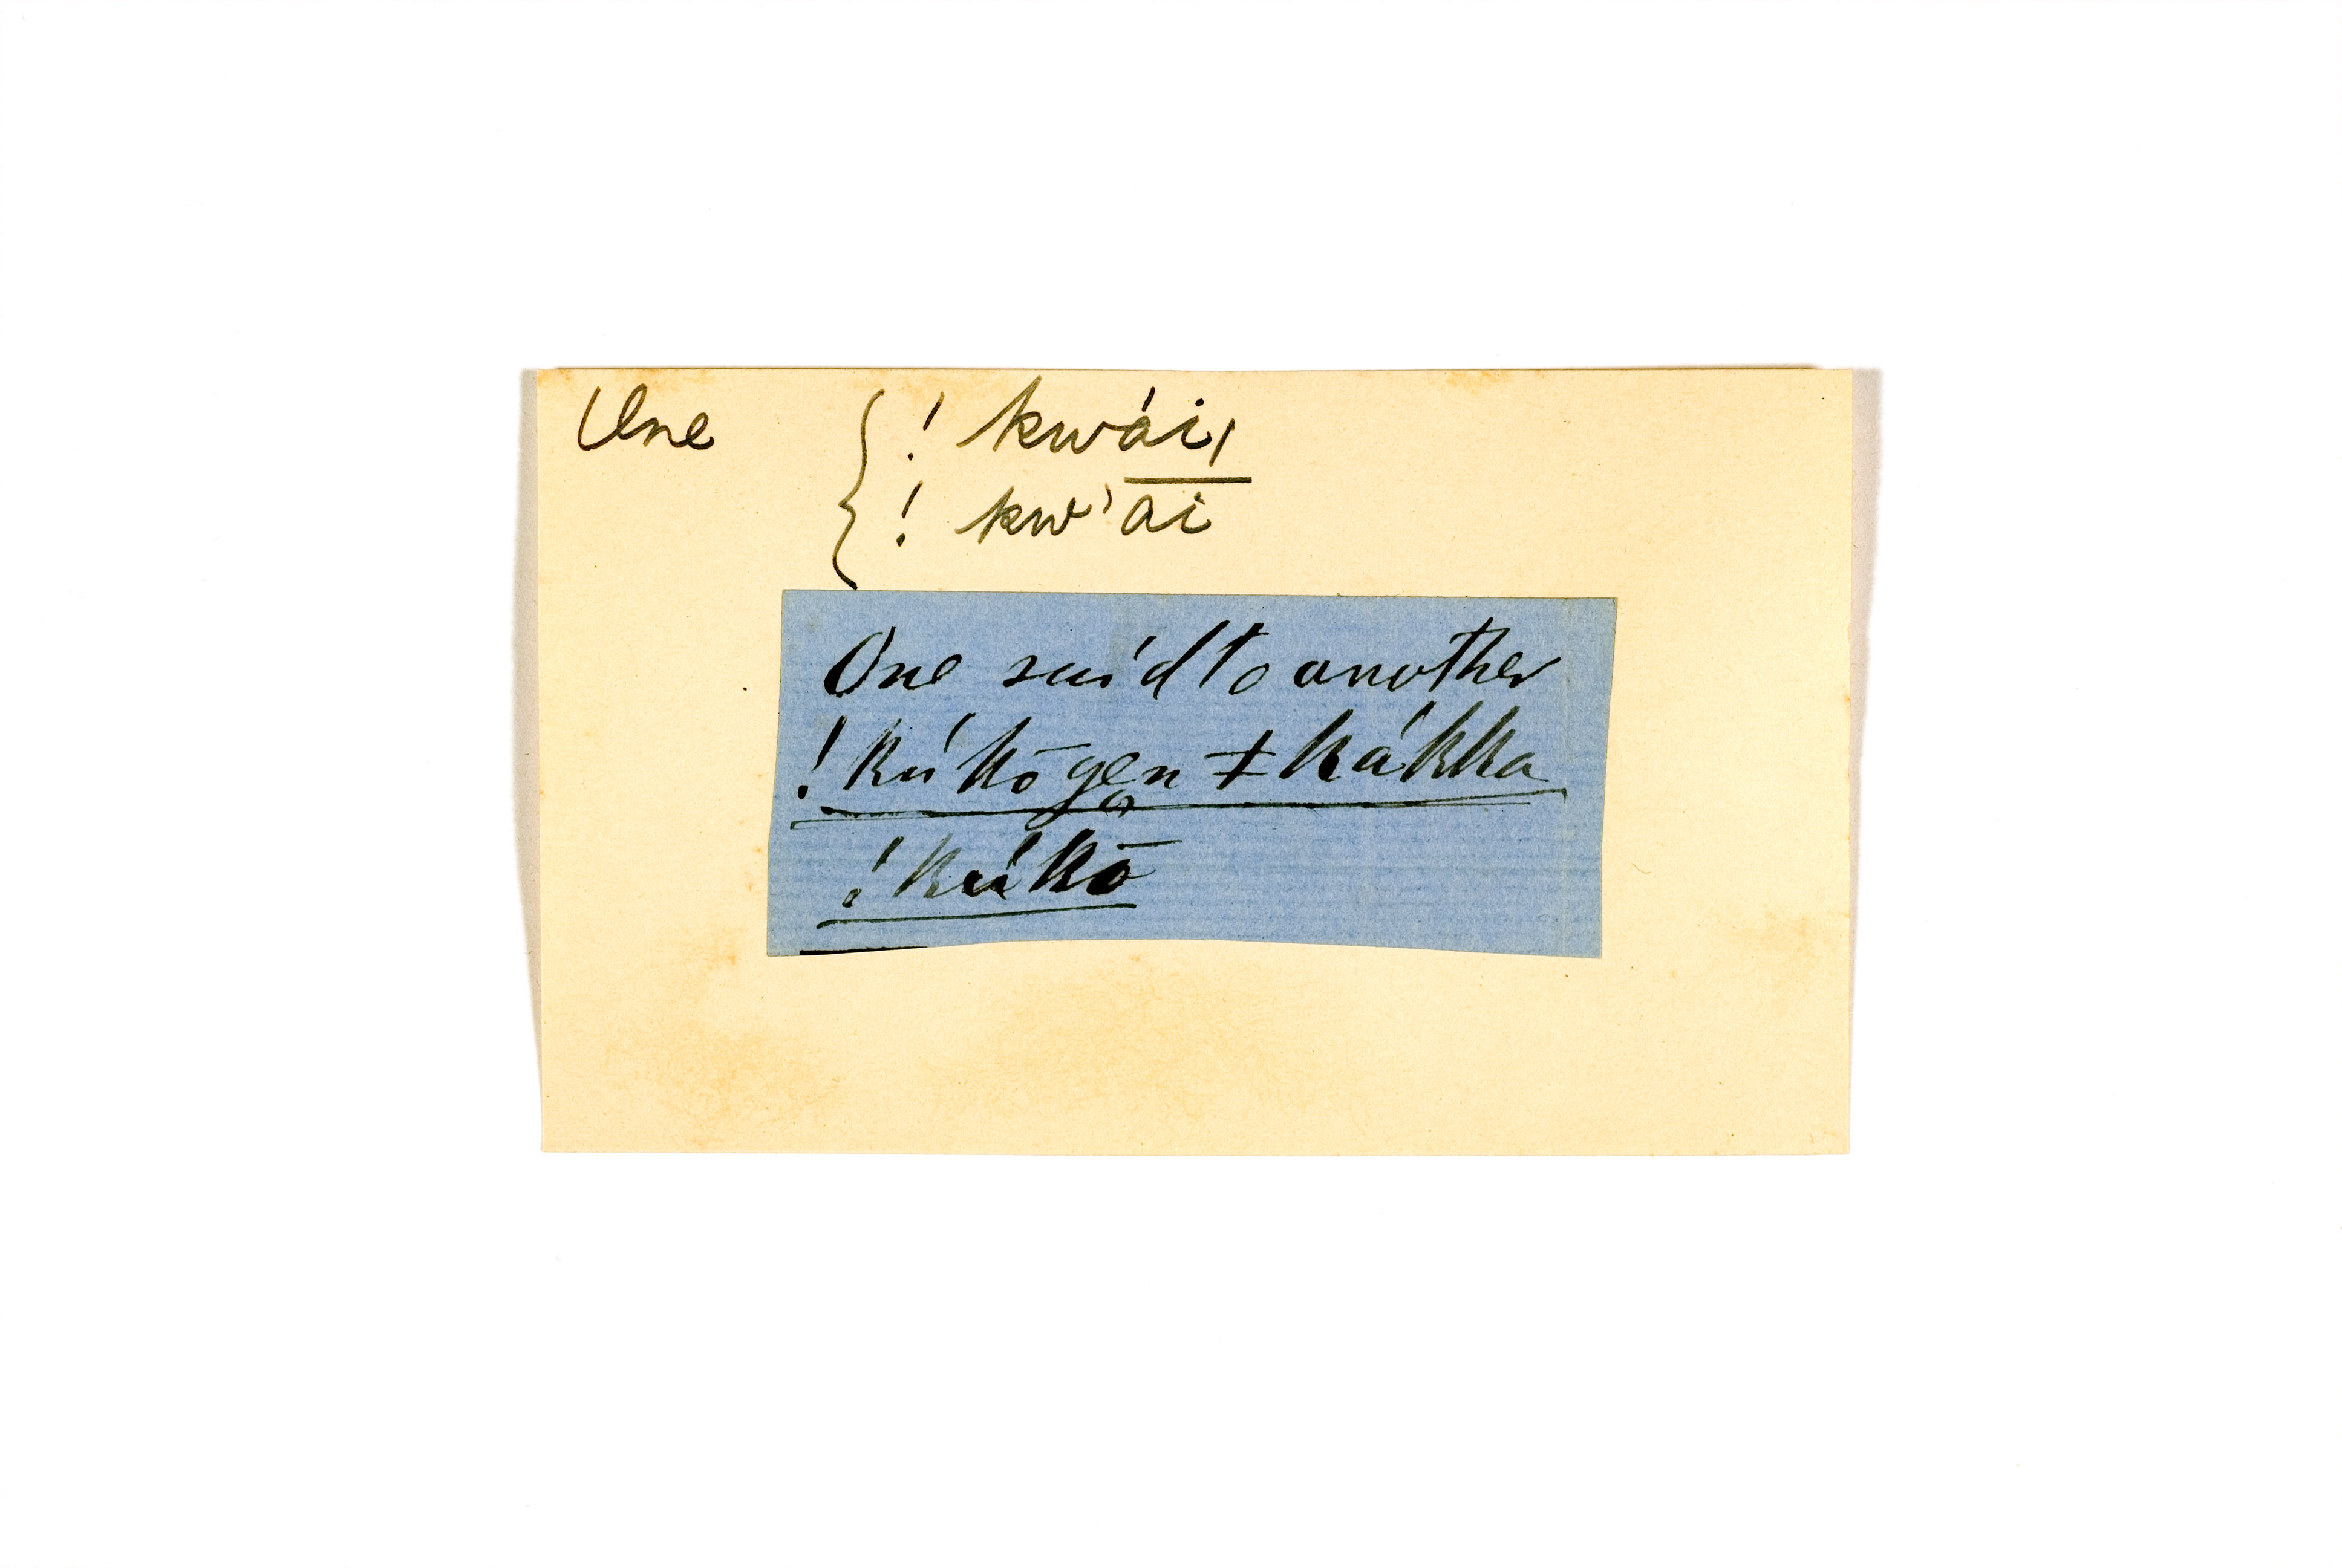 One { ! kwái,
! kw'ai
One said to another
! kúkōgen ǂ kákka
! kúkō